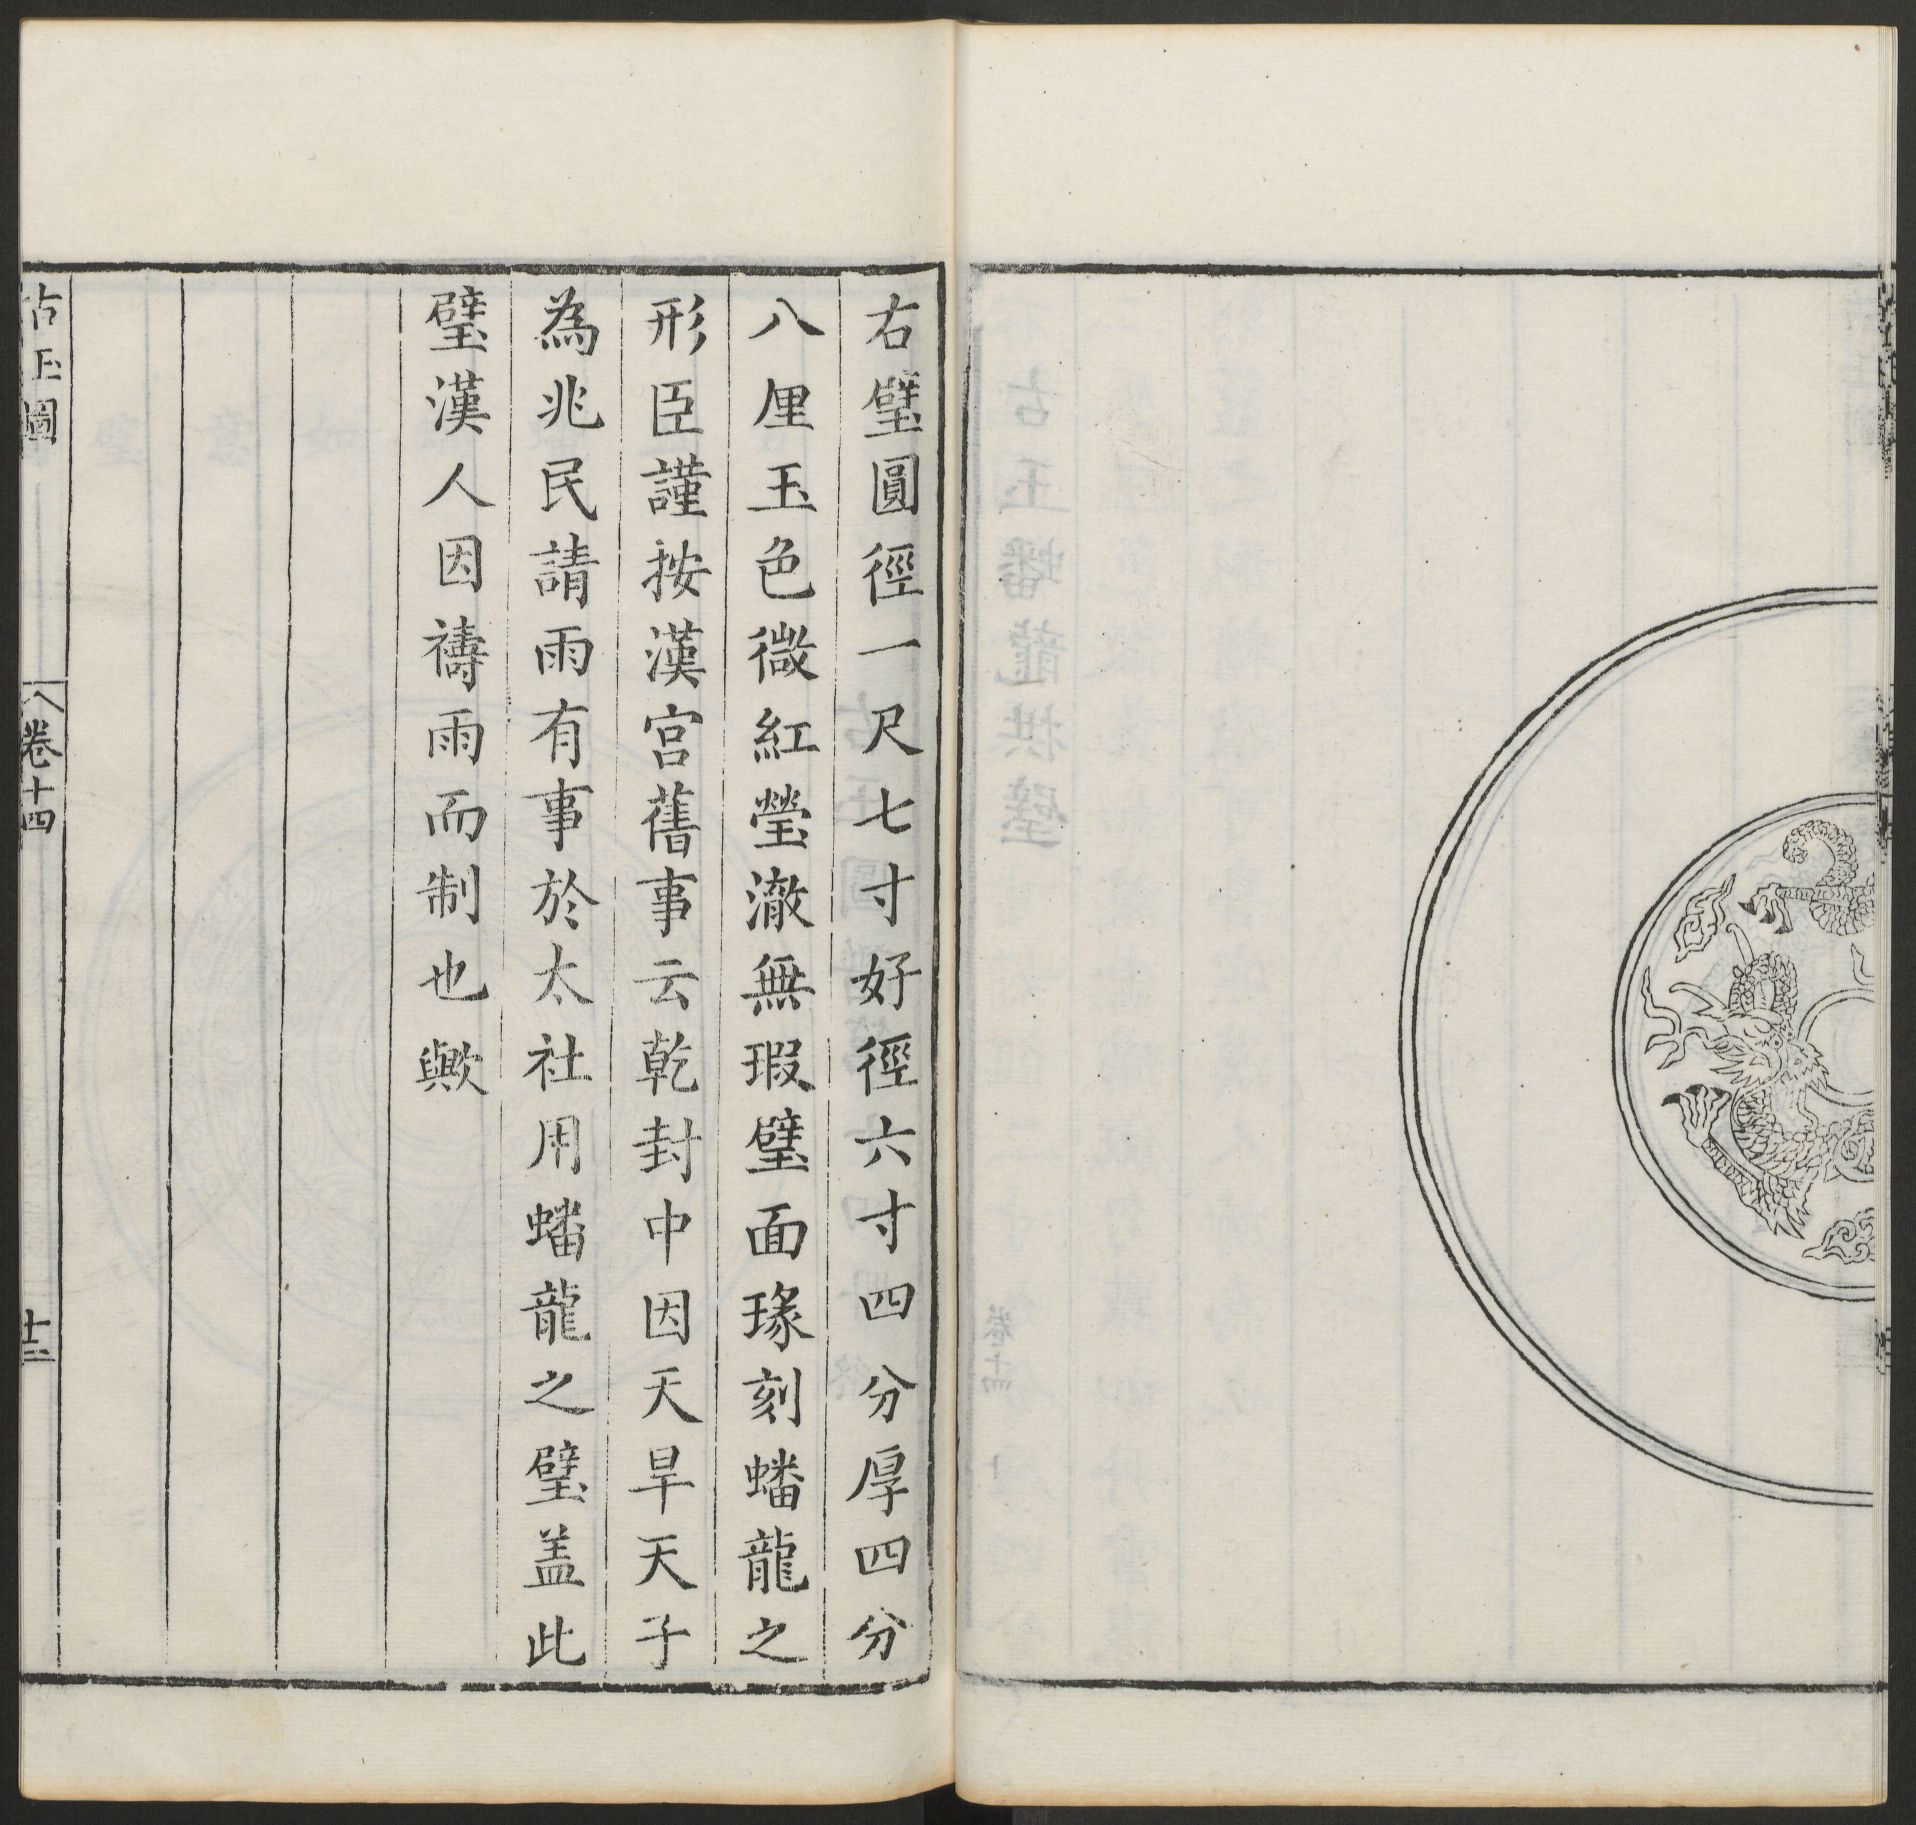 右璧圓徑一尺七寸好徑六寸四分厚四分
八厘玉色微紅瑩澈無瑕璧面瑑刻蟠龍之
形臣謹按漢宮舊事云乾封中因天旱天子
為兆民請雨有事於太社用蟠龍之璧盖此
璧漢人因禱雨而制也歟
古玉圖
卷十四
十二